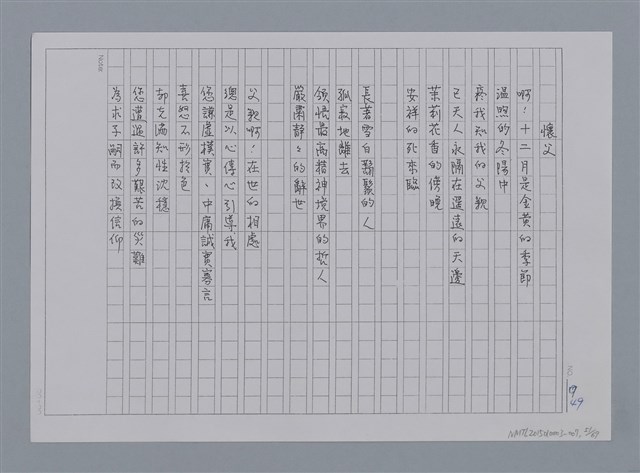 懷父
啊！十二月是金黃的季節
溫煦的冬陽中
疼我知我的父親
已天人永隔在遙遠的天邊
茉莉花香的傍晚
安祥的死來臨
長著雪白鬍鬚的人
孤寂地離去
領悟最高精神境界的哲人
嚴肅靜々的辭世
父親啊！在世的相處
總是以心傳心引導我
您謙虛樸實、中庸誠實寡言
喜怒不形於色
却充滿知性沈穩
您遭遇許多艱苦的災難
為求子嗣而改換信仰
Note
NO
49